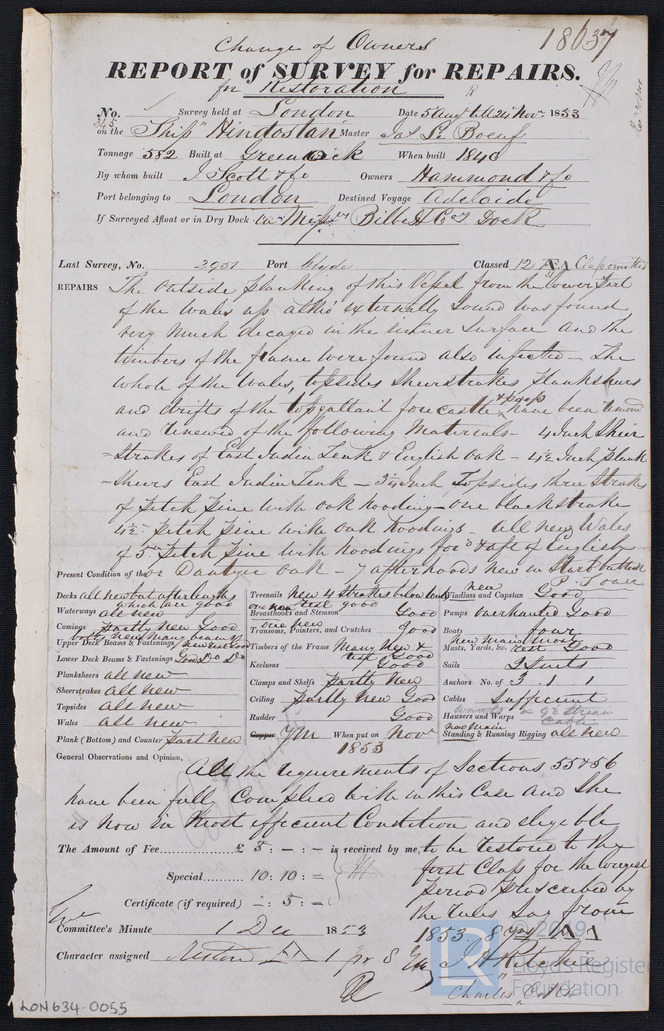 Change of Owners
18637
REPORT of SURVEY for REPAIRS.
for Restoration
No. 345 Survey held at London Date 5 Augt till 24 Novr 1853
on the Ship "Hindostan Master Jas Le Boeuf
Tonnage 552 Built at Greenock When built 1840
By whom built J Scott & Co Owners Hammond & Co
Port belonging to London Destined Voyage Adelaide
If Surveyed Afloat or in Dry Dock in Messrs Dock
Last Survey, No. 2951 Port Clyde Classed 12 A Class omitted
REPAIRS The outside planking of this Vessel from the lower part
of the wales up altho externally sound was found
very much decayed in the inner surface and the
timbers of the frame were found also infected - The
whole of the Wales, topsides Sheerstrakes Planksheers
and drifts of the topgallant forecastle & poop have been removed
and renewed of the following Materials - 4 Inch Sheer
Strakes of East India Teak & English Oak - 4½ Inch Plank
-sheers East India Teak - 3¼ Inch Topsides three Strakes
of Pitch Pine with oak hooding - one blackstrake
4½ pitch pine with oak hoodings - all new Wales
of 5 Pitch Pine with hoodings for'd & aft of English
or Dantzic oak - 7 afterhoods new in Starboard buttock
P. Turn
Present Condition of the
Decks all new but afterlengths which are good
Waterways all new
Comings Partly new Good
Upper Deck Beams & Fastenings bolts new many beams new rest Good
Lower Deck Beams & Fastenings Do Do
Planksheers all new
Sheerstrakes all new
Topsides all new
Wales all new
Plank (Bottom) and Counter Part new
Treenails New 4 strakes below wales rest good
Breasthooks and Stemson one new Good
Transoms, Pointers, and Crutches one new Good
Timbers of the Frame Many New & rest Good
Keelsons Good
Clamps and Shelfs Partly New
Ceiling Partly New Good
Rudder Good
Copper YM When put on Novr 1853
Windlass and Capstan new Good
Pumps overhauled Good
Boats four
Masts, Yards, &c. new main mast rest Good
Sails 2 Suits
Anchors No. of 3 . 1 . 1
Cables Sufficient
Hawsers and Warps wants a 90 stream Cable
Standing & Running Rigging all new
General Observations and Opinion,
All the requirements of Sections 55 & 56
have been full Complied with in this Case and She
is now in most efficient Condition and eligible
to be restored to the
first Class for the longest
period prescribed by
the rules say from
1853 - 8 Yrs A
The Amount of Fee £ 5 : - : - is received by me,
Special 10 : 10 : =
Certificate (if required) - : 5 : -
Committee's Minute 1 Dec 1853
Character assigned Restored A 1 for 8 Yrs
J H Ritchie
Charles
LON634-0055
© 2019
LR
Lloyd's Register
Foundation